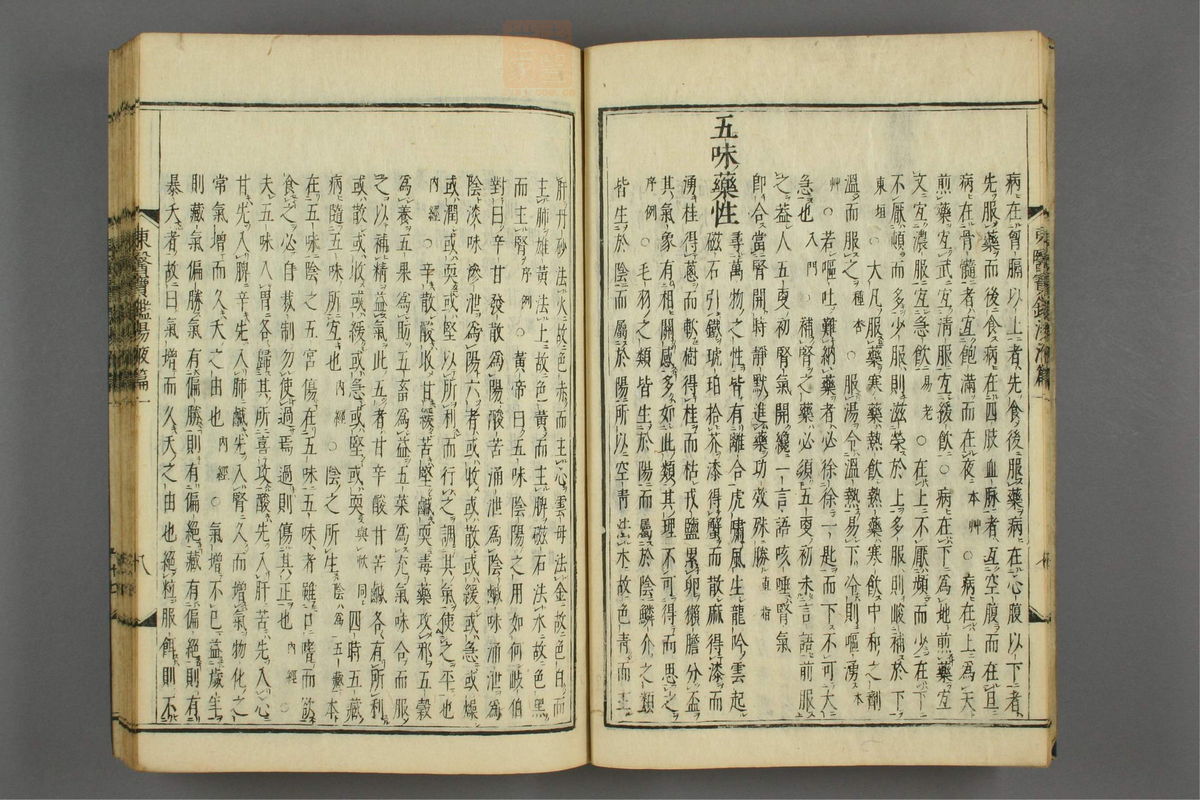 病在胷膈以上者先食後服藥病在心腹以下者
先服藥而後食病在四肢血脉者宜空腹而在旦
病在骨髓者宜飽滿而在夜本艸○病在上為天
煎藥宜武宜清服宜緩飲○病在下為地煎藥宜
文宜濃服宜急飲易老○在上不厭頻而少在下
不厭頓而多少服則滋榮於上多服則峻補於下
東垣○大凡服藥寒藥熱飲熱藥寒飲中和之劑
溫而服之種杏○服湯令溫熱易下冷則嘔湧本
艸○若嘔吐難納藥者必徐徐一匙而下不可大
急也入門○補腎之藥必須五更初未言語前服
之益人五更初腎氣開纔一言語咳唾腎氣
即合當腎開時靜默進藥功效殊勝直指
五味藥性
尋萬物之性皆有離合虎嘯風生龍吟雲起
磁石引鐵琥珀拾芥漆得蟹而散麻得漆而
湧桂得蔥而軟樹得桂而枯戎鹽累卵獺膽分盃
其氣象有相關感多如此類其理不可得而思之
序例○毛羽之類皆生於陽而屬於陰鱗介之類
皆生於陰而屬於陽所以空青法木故色青而主
肝丹砂法火故色赤而主心雲母法金故色白而
主肺雄黃法土故色黃而主脾磁石法水故色黑
而主腎序例○黃帝曰五味陰陽之用如何岐伯
對曰辛甘發散為陽酸苦涌泄為陰鹹味涌泄為
陰淡味滲泄為陽六者或收或散或緩或急或燥
或潤或耎或堅以所利而行之調其氣使之平也
內經○辛散酸收甘緩苦堅鹹耎毒藥攻邪五穀
為養五果為助五畜為益五菜為充氣味合而服
之以補精益氣此五者甘辛酸甘苦鹹各有所利
或散或收或緩或急或堅或耎與軟同四時五藏
病隨五味所宜也內經○陰之所生陰為五藏本
在五味陰之五宮傷在五味五味者雖口嗜而飲
食之必自裁制勿使過焉過則傷其正也內經○
夫五味入胃各歸其所喜攻酸先入肝苦先入心
甘先入脾辛先入肺鹹先入腎久而增氣物化之
常氣增而久夭之由也內經○氣增不已益歲年
則藏氣偏勝氣有偏勝則有偏絕藏有偏絕則有
暴夭者故曰氣增而久夭之由也絕粒服餌則不
東醫寶鑑湯液篇一
八